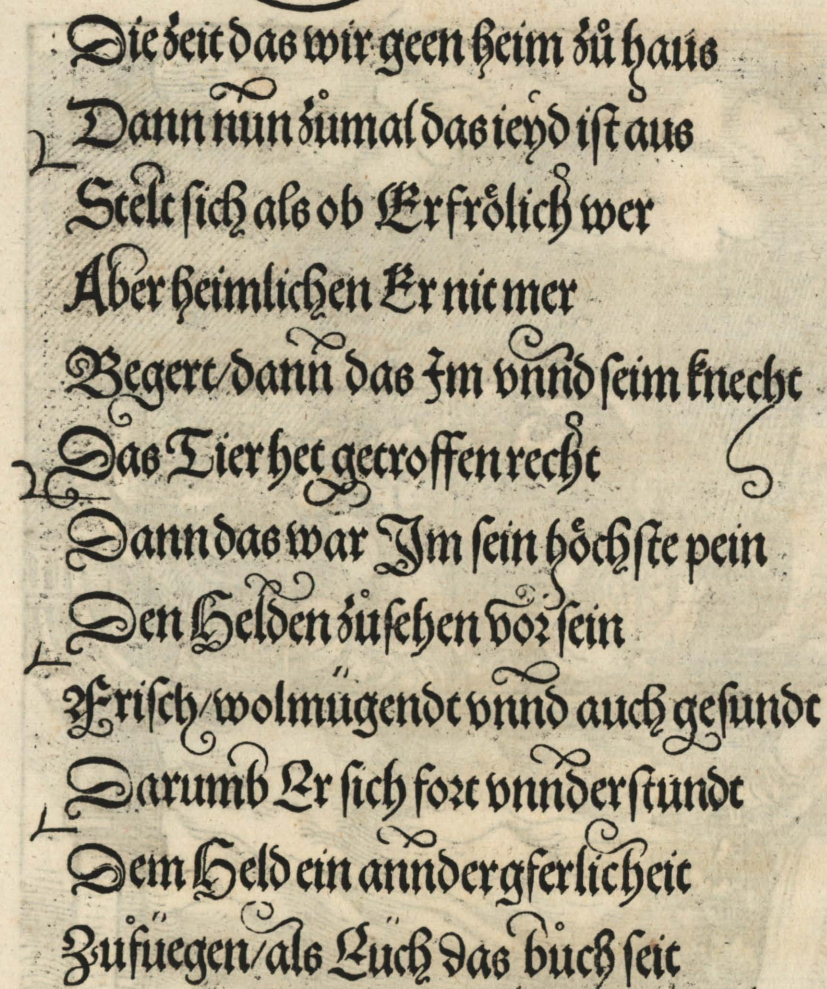 Die zeit das wir geen heim zů haus
Dann nun zůmal das ieyd ist aus
Stelt sich als ob Er frölich wer
Aber heimlichen Er nit mer
Begert/dann das Im vnnd seim knecht
Das Tier het getroffen recht
Dann das war Im sein höchste pein
Den Helden zůsehen vor sein
Frisch/wolmügendt vnnd auch gesundt
Darumb Er sich fort vnnderstundt
Dem Held ein annder gferlicheit
Zůfüegen/als Eüch das bůch seit